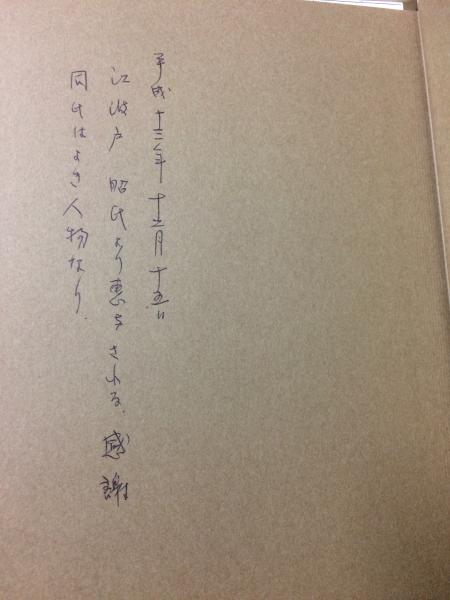 平成十三年十二月十五日
江波戸 昭氏より恵与される、感謝
同氏はよき人物なり.